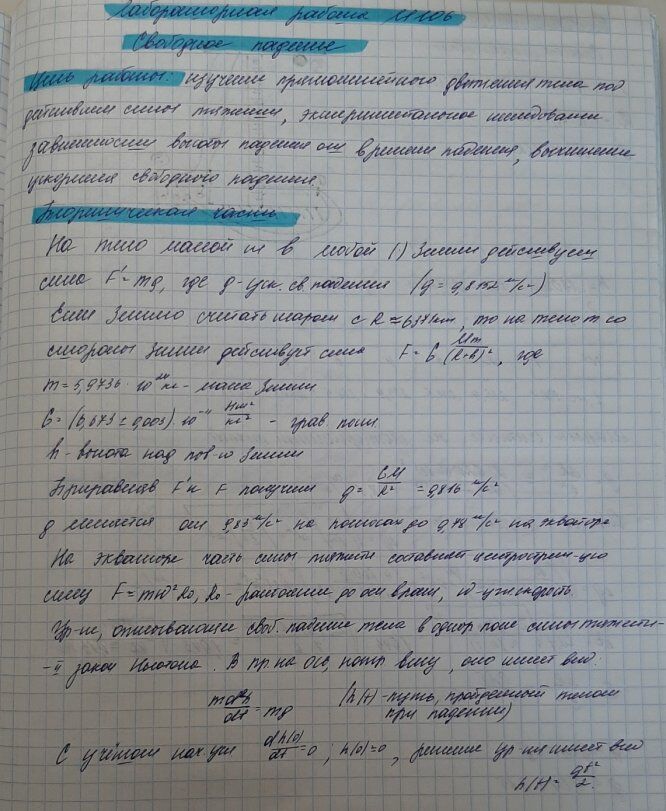 Лабораторная работа №106
Свободное падение
Цель работы: изучение прямолинейного движения тела под
действием силы тяжести, экспериментальное исследование
зависимости высоты падения от времени падения, вычисление
ускорения свободного падения.
Теоретическая часть
На тело массой m в любой () Земли действует
сила F' = mg, где g - уск. св. падения (g = 9,8152 м/с²)
Если Землю считать шаром с R ≈ 6371км, то на тело m со
стороны Земли действует сила F = G Mm/(R+h)², где
m = 5,9736 · 10²⁴ кг - масса Земли
G = (6,673 ± 0,003) · 10⁻¹¹ Нм²/кг² - грав. пост
h - высота над пов-ю Земли
Приравняв F' к F получим g = GM/R² = 9,816 м/с²
g меняется от 9,83 м/с² на полюсах до 9,78 м/с² на экваторе
На экваторе часть силы тяжести составляет центростр-ую
силу F = mω²R₀, R₀ - расстояние до оси вращ, ω - угл.скорость.
Ур-ие, описывающее своб. падение тела в однор поле силы тяжести-
- II закон Ньютона. В пр. на ось, напр вниз, оно имеет вид:
md²h/dt = mg (h(t) - путь, пройденный телом
при падении)
С учётом нач. усл dh(0)/dt = 0 ; h(0) = 0, решение ур-ия имеет вид
h(t) = gt²/2.